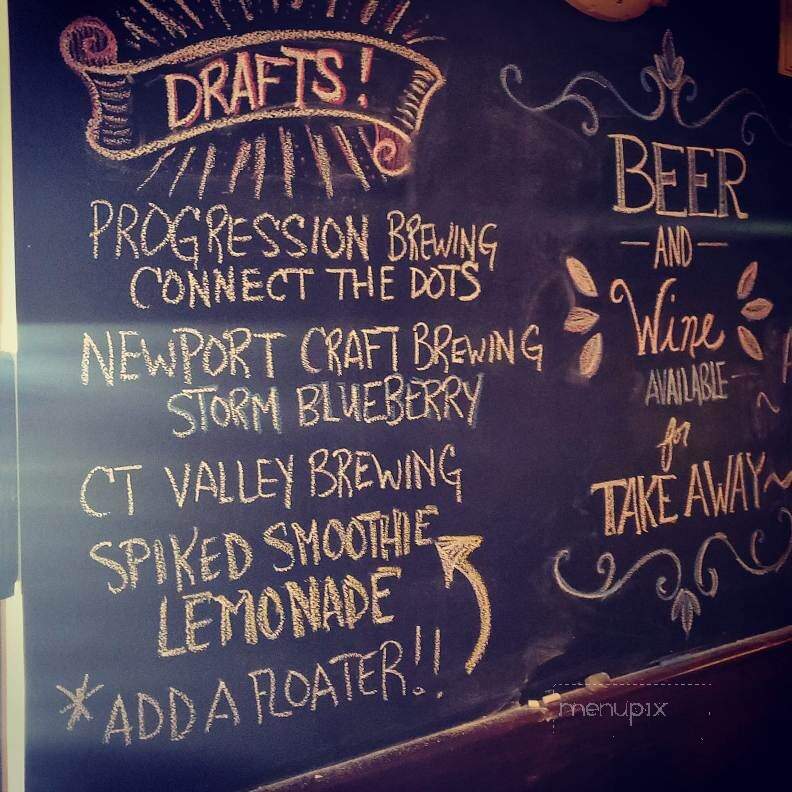 DRAFTS!
PROGRESSION BREWING
CONNECT THE DOTS
NEWPORT CRAFT BREWING
STORM BLUEBERRY
CT VALLEY BREWING
SPIKED SMOOTHIE
LEMONADE
*ADD A FLOATER!!
BEER
-AND-
Wine
AVAILABLE
for
TAKE AWAY~
menupix